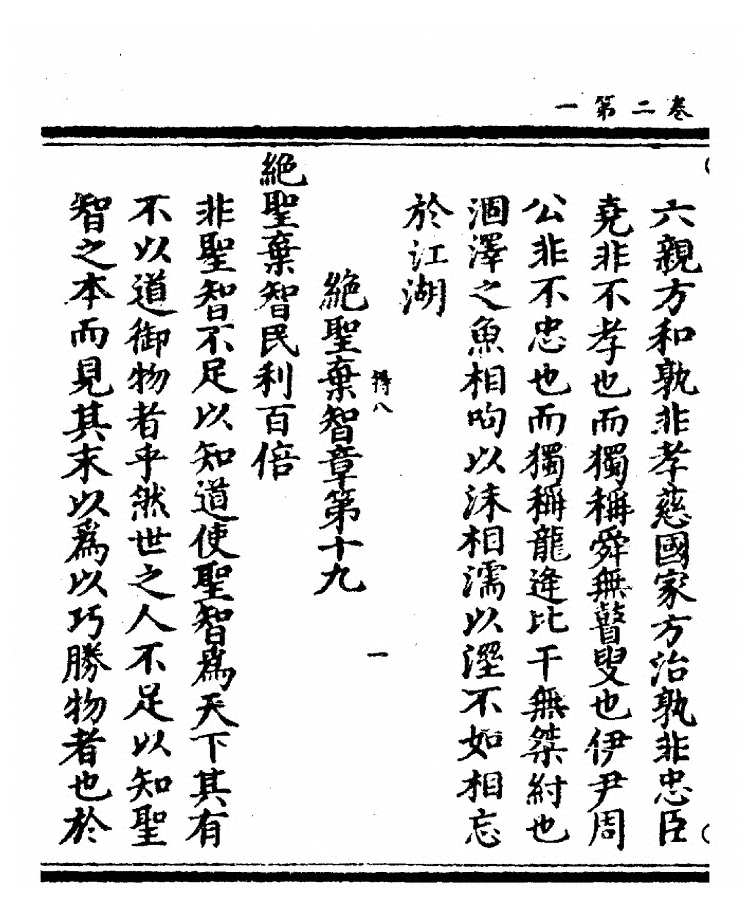 卷二第一
六親方和孰非孝慈國家方治孰非忠臣
堯非不孝也而獨稱舜無瞽叟也伊尹周
公非不忠也而獨稱龍逄比干無桀紂也
涸澤之魚相呴以沫相濡以溼不如相忘
於江湖
得八
絕聖棄智章第十九
一
絕聖棄智民利百倍
非聖智不足以知道使聖智爲天下其有
不以道御物者乎然世之人不足以知聖
智之本而見其末以爲以巧勝物者也於